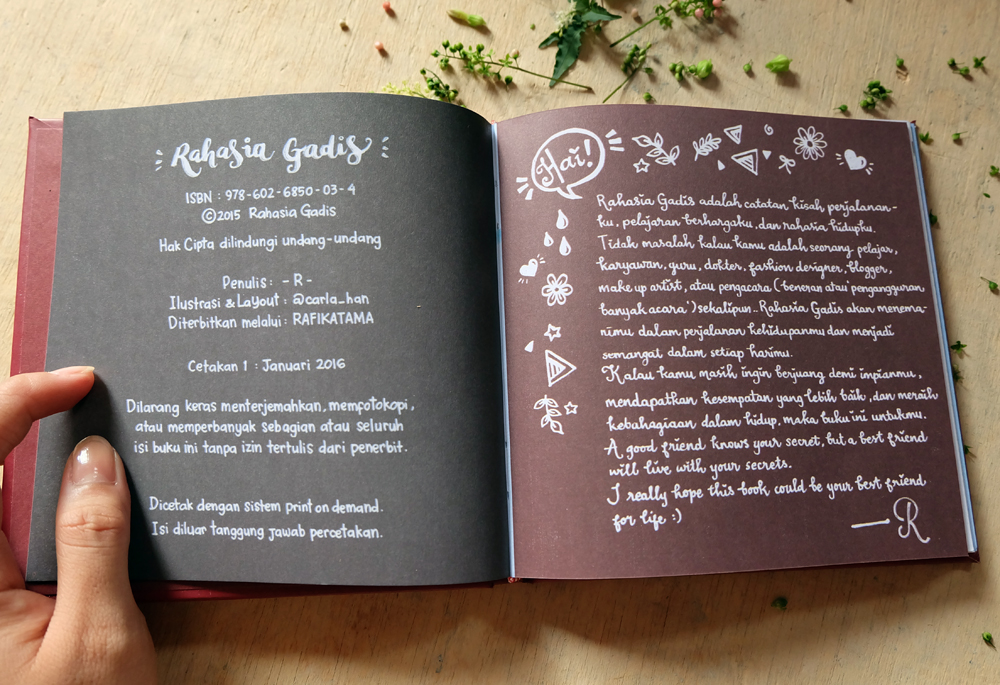 Rahasia Gadis
ISBN : 978-602-6850-03-4
©2015 Rahasia Gadis
Hak Cipta dilindungi undang-undang
Penulis: -R-
Ilustrasi & Layout : @carla_han
Diterbitkan melalui: RAFIKATAMA
Cetakan 1 : Januari 2016
Dilarang keras menterjemahkan, memfotokopi,
atau memperbanyak sebagian atau seluruh
isi buku ini tanpa izin tertulis dari penerbit.
Dicetak dengan sistem print on demand.
Isi diluar tanggung jawab percetakan.
Hai!
Rahasia Gadis adalah catatan kisah perjalanan-
ku, pelajaran berhargaku, dan rahasia hidupku.
Tidak masalah kalau kamu adalah seorang pelajar,
karyawan, guru, dokter, fashion designer, blogger,
make up artist, atau pengacara ('beneran atau 'pengangguran
banyak acara') sekalipun.. Rahasia Gadis akan menema-
nimu dalam perjalanan kehidupanmu dan menjadi
semangat dalam setiap harimu.
Kalau kamu masih ingin berjuang demi impianmu,
mendapatkan kesempatan yang lebih baik, dan meraih
kebahagiaan dalam hidup, maka buku ini untukmu.
A good friend knows your secret, but a best friend
will live with your secrets.
I really hope this book could be your best friend
for life :)
— R